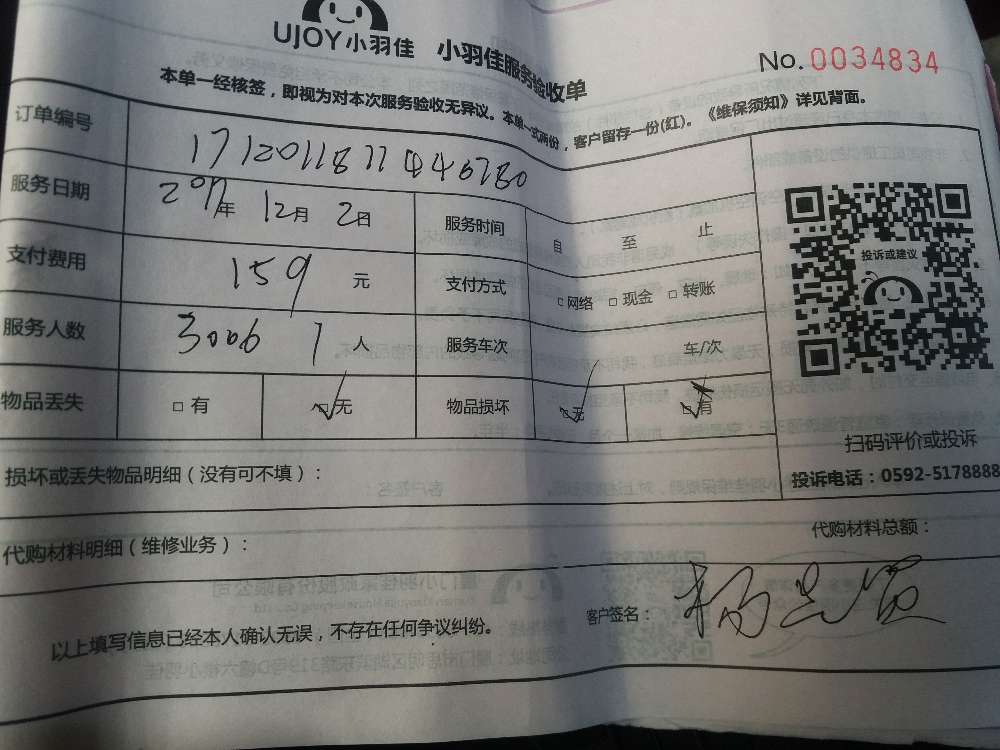 UJOY小羽佳 小羽佳服务验收单
No. 0034834
本单一经核签，即视为对本次服务验收无异议。本单一式两份，客户留存一份(红)。《维保须知》详见背面。
订单编号
服务日期 2017年 12月 2日 服务时间 自 至 止
支付费用 159 元 支付方式 □网络 □现金 □转账
服务人数 3006 1 人 服务车次 车/次
物品丢失 □有 □无 物品损坏 □无 □有
投诉或建议
扫码评价或投诉
投诉电话：0592-5178888
损坏或丢失物品明细（没有可不填）：
代购材料明细（维修业务）： 代购材料总额：
以上填写信息已经本人确认无误，不存在任何争议纠纷。 客户签名：